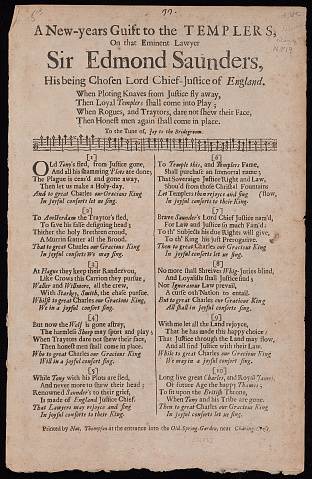 A New-years Guift to the TEMPLERS,
On that Eminent Lawyer
Sir Edmond Saunders,
His being Chosen Lord Chief-Justice of England.
When Ploting Knaves from Justice fly away,
Then Loyal Templers shall come into Play;
When Rogues, and Traytors, dare not shew their Face,
Then Honest men again shall come in place.
To the Tune of, Joy to the Bridegroom.
[1]
OLd Tony's fled, from Justice gone,
And all his shamming Plots are done;
The Plague is ceas'd and gone away,
Then let us make a Holy-day.
And to great Charles our Gracious King
In joyful consorts let us sing.
[2]
To Amsterdam the Traytor's fled,
To save his false designing head;
Thither the holy Brethren croud,
A Murnin scatter all the Brood.
That to great Charles our Gracious King
In joyful consorts We may sing.
[3]
At Hague they keep their Randezvou,
Like Crows this Carrion they pursue,
Waller and Wildmore, all the crew,
With Starkey, Smith, the chase pursue.
Whilst to great Charles our Gracious King,
We in a joyful consort sing.
[4]
But now the Wolf is gone astray,
The harmless Sheep may sport and play;
When Traytors dare not shew their face,
Then honest men shall come in place.
Who to great Charles our Gracious King
Will in a joyful consort sing.
[5]
While Tony with his Plots are fled,
And never more to shew their head;
Renowned Saunders to their grief,
Is made of England Justice Chief.
That Lawyers may rejoyce and sing
In joyful consorts to their King.
[6]
To Temple this, and Templers Fame,
Shall purchase an Immortal name;
That Soveraign Justice Right and Law,
Shou'd from those Christal Fountains
Let Templers then rejoyce and sing (flow,
In joyful consorts to their King.
[7]
Brave Saunders's Lord Chief Justice nam'd,
For Law and Justice is much Fam'd:
To th' Subjects his due Rights will give,
To th' King his just Prerogative.
Then to great Charles our Gracious King
In joyful consorts let us sing.
[8]
No more shall Shreives Whig-Juries blind,
And Loyalists shall Justice find;
Nor Ignoramus Law prevail,
A curse on't Nation to entail.
But to great Charles our Gracious King
All shall in joyful consorts sing.
[9]
With me let all the Land rejoyce,
That he has made this happy choice;
That Justice through the Land may flow,
And all find Justice with their Law.
While to great Charles our Gracious King
We may in a joyful consort sing.
[10]
Long live great Charles, and Royal James,
Of future Age the happy Thames;
To sit upon the British Throne,
When Tony and his Tribe are gone.
Then to great Charles our Gracious King
In joyful consorts let us sing.
Printed by Nat. Thompson at the entrance into the Old-Spring-Garden, near Charing-Cross.